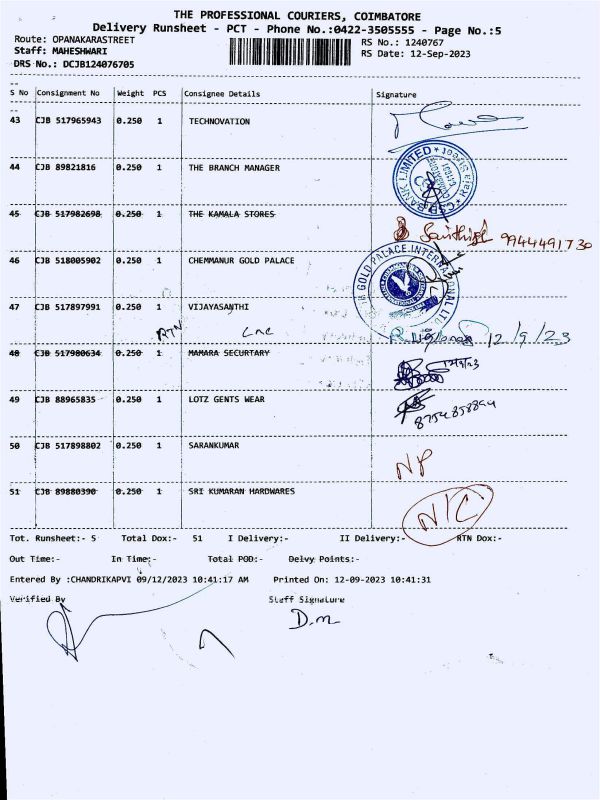 THE PROFESSIONAL COURIERS, COIMBATORE
Delivery Runsheet - PCT - Phone No.:0422-3505555 - Page No.:5
Route: OPANAKARASTREET
RS No.: 1240767
Staff: MAHESHWARI
RS Date: 12-Sep-2023
DRS No.: DCJB124076705
S No Consignment No Weight PCS Consignee Details Signature
43 CJB 517965943 0.250 1 TECHNOVATION
44 CJB 89821816 0.250 1 THE BRANCH MANAGER
BANK LIMITED
45 CJB 517982698 0.250 1 THE KAMALA STORES
9944491730
46 CJB 518005902 0.250 1 CHEMMANUR GOLD PALACE
GOLD PALACE INTERNATIONAL LTD
47 CJB 517897991 0.250 1 VIJAYASANTHI
RTN LNC
12/9/23
48 CJB 517980634 0.250 1 MAMARA SECURTARY
12/9/23
49 CJB 88965835 0.250 1 LOTZ GENTS WEAR
8754858894
50 CJB 517898802 0.250 1 SARANKUMAR
NP
51 CJB 89880390 0.250 1 SRI KUMARAN HARDWARES
N/C
Tot. Runsheet:- 5 Total Dox:- 51 I Delivery:- II Delivery:- RTN Dox:-
Out Time:- In Time:- Total POD:- Delvy Points:-
Entered By :CHANDRIKAPVI 09/12/2023 10:41:17 AM Printed On: 12-09-2023 10:41:31
Verified By Staff Signature
D.m